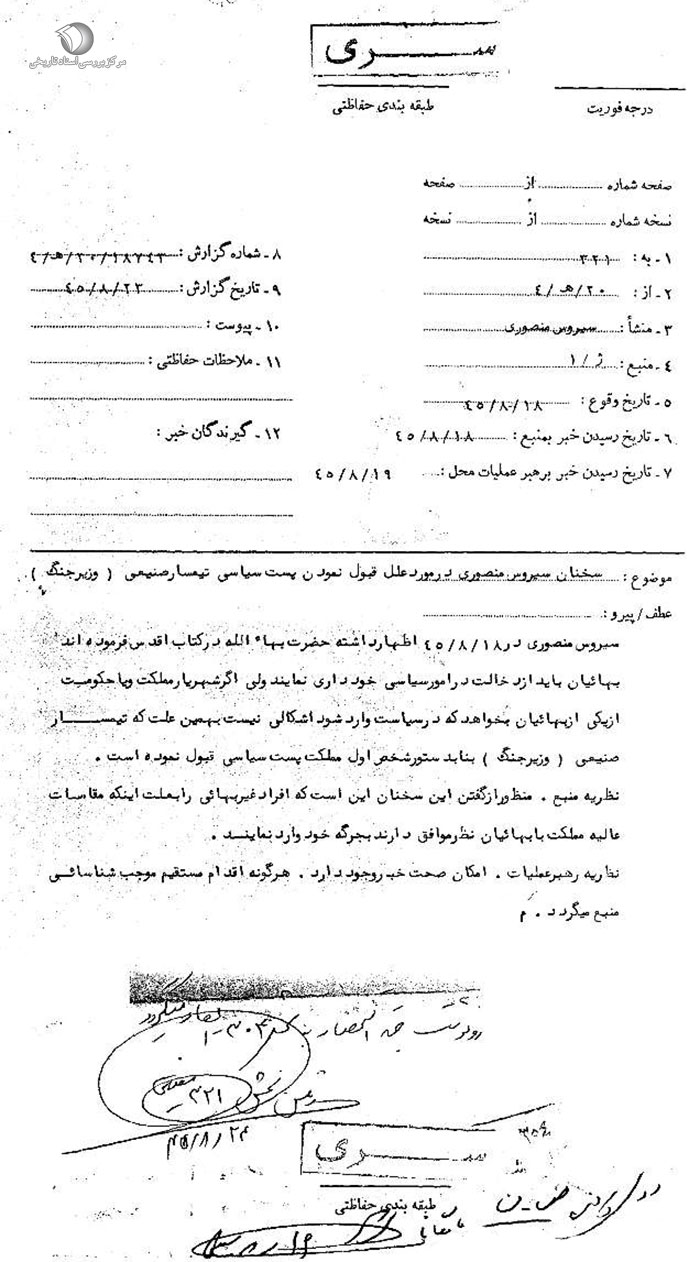 مرکز بررسی اسناد تاریخی
سری
طبقه بندی حفاظتی
درجه فوریت
صفحه شماره ........ از ........ صفحه
نسخه شماره ........ از ........ نسخه
۱ - به : ۳۲۱
۲ - از : ۲۰/هـ/۴
۳ - منشأ : سیروس منصوری
۴ - منبع : ژ/۱
۵ - تاریخ وقوع : ۴۵/۸/۱۸
۶ - تاریخ رسیدن خبر بمنبع : ۴۵/۸/۱۸
۷ - تاریخ رسیدن خبر برهبر عملیات محل : ۴۵/۸/۱۹
۸ - شماره گزارش : ۲۰/۱۸۷۴۳/هـ/۴
۹ - تاریخ گزارش : ۴۵/۸/۲۲
۱۰ - پیوست :
۱۱ - ملاحظات حفاظتی :
۱۲ - گیرندگان خبر :
موضوع : سخنان سیروس منصوری درمورد علل قبول نمودن پست سیاسی تیمسار صنیعی ( وزیرجنگ )
عطف/پیرو :
سیروس منصوری در ۴۵/۸/۱۸ اظهارداشته حضرت بهاء الله درکتاب اقدس فرموده اند
بهائیان باید ازدخالت درامورسیاسی خودداری نمایند ولی اگرشهریارمملکت ویاحکومت
ازیکی ازبهائیان بخواهد که درسیاست وارد شود اشکالی نیست بهمین علت که تیمسار
صنیعی ( وزیرجنگ ) بنابدستورشخص اول مملکت پست سیاسی قبول نموده است .
نظریه منبع . منظورازگفتن این سخنان این است که افراد غیربهائی رابعلت اینکه مقامات
عالیه مملکت بابهائیان نظرموافق دارند بجرگه خود وارد نمایند .
نظریه رهبرعملیات . امکان صحت خبر وجود دارد . هرگونه اقدام مستقیم موجب شناسائی
منبع میگردد . م
رئیس بخش ۳۲۱
۴۵/۸/۲۴
سری
طبقه بندی حفاظتی